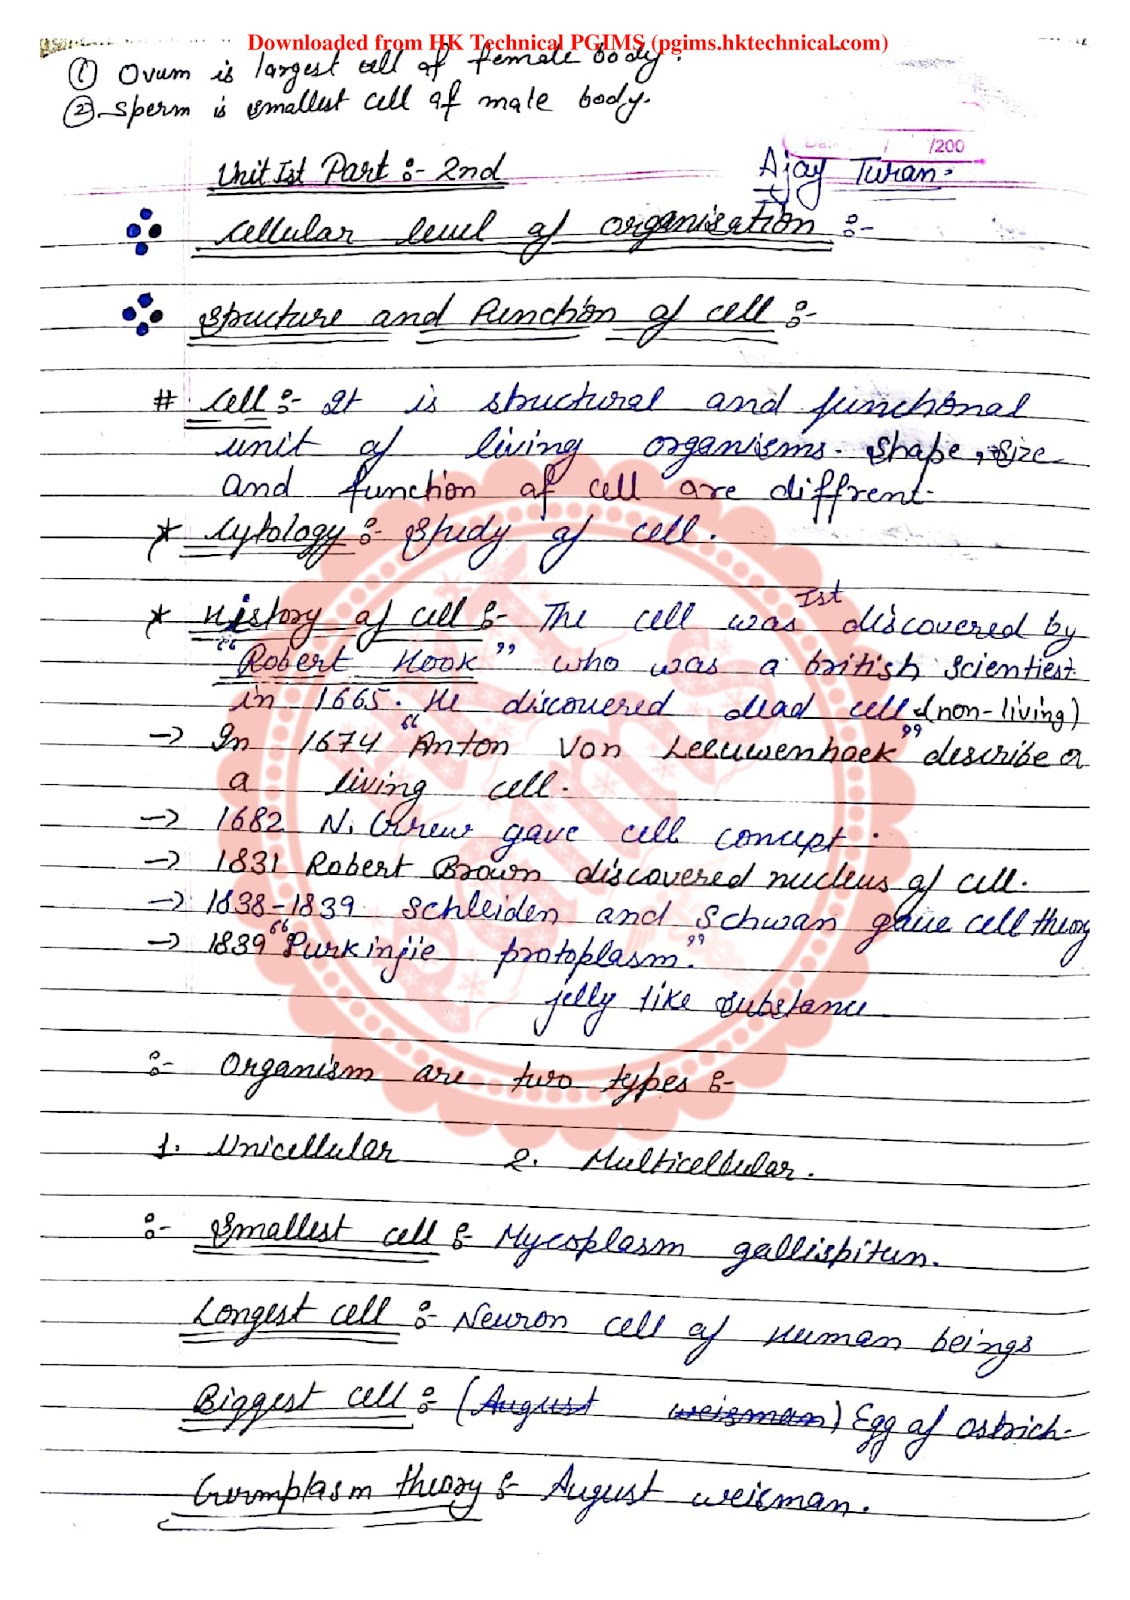 Downloaded from HK Technical PGIMS (pgims.hktechnical.com)
① Ovum is largest cell of female body.
②. Sperm is smallest cell of male body.
/ /200
Unit Ist Part :- 2nd
Ajay Turan.
Cellular level of organisation :-
Structure and Function of cell :-
# Cell :- It is structural and functional
unit of living organisms. Shape, size
and function of cell are diffrent.
* Cytology :- Study of cell.
* History of cell :- The cell was Ist discovered by
"Robert Hook" who was a british scientiest
in 1665. He discovered dead cell (non-living)
→ In 1674 "Anton Von Leeuwenhoek" describe
a living cell.
→ 1682 N. Grew gave cell concept.
→ 1831 Robert Brown discovered nucleus of cell.
→ 1838-1839 Schleiden and Schwan gave cell theory
→ 1839 "Purkinjie protoplasm."
jelly like substance
:- Organism are two types :-
1. Unicellular 2. Multicellular.
:- Smallest cell :- Mycoplasm gallispitun.
Longest cell :- Neuron cell of Human beings
Biggest cell :- (August weisman) Egg of ostrich.
Germplasm theory :- August weisman.